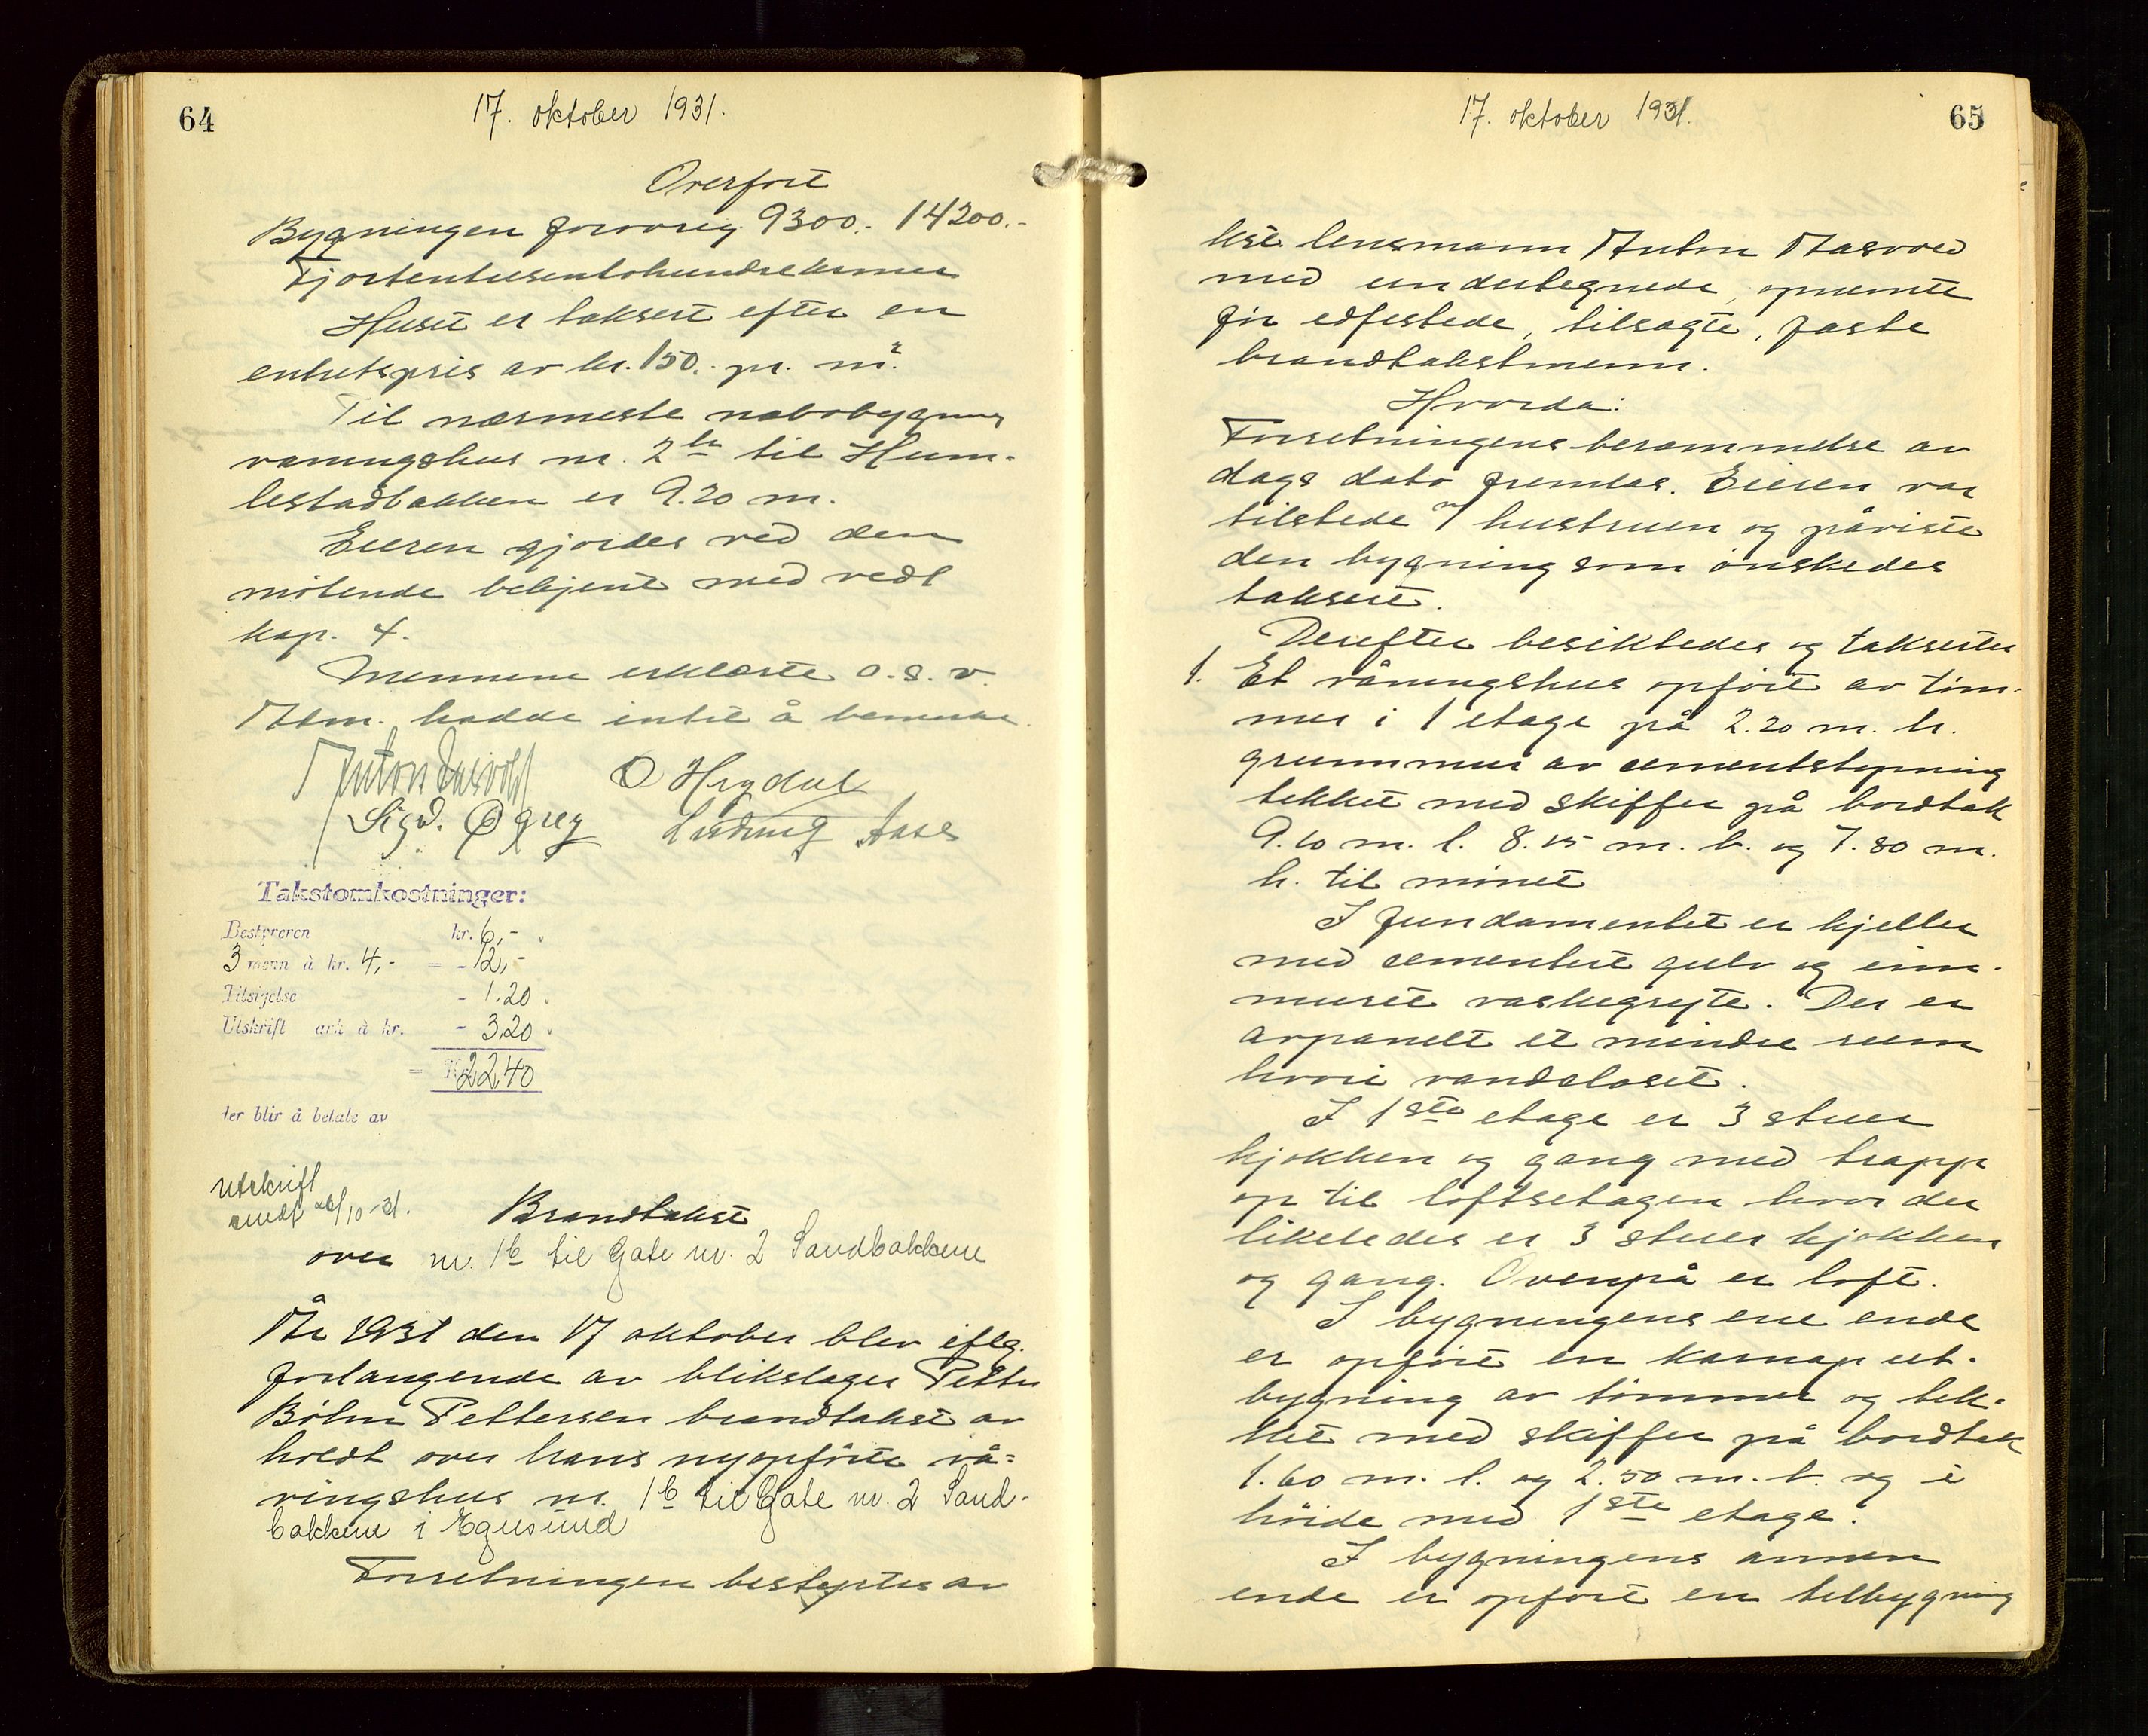 64
17. oktober 1931.
Overført
Bygningen forøvrig 9300.- 14200.-
Fjortentusentohundrekroner
Huset er taksert efter en
enhetspris av kr. 150.- pr. m².
Til nærmeste nabobygning
våningshus nr. 2 til Hum-
lestadbakken er 9.20 m.
Eieren gjordes ved den
møtende bekjent med vedt
kap. 4.
Mennene erklærte o.s.v.
Adm. hadde intet å bemerke.
Anton Aasvold O Hegdal
Sigv. Øgrey Ludvig Aase
Takstomkostninger:
Bestyreren kr. 6,-
3 menn à kr. 4,- = - 12,-
Tilsigelse - 1.20
Utskrift ark à kr. - 3.20
= Kr. 22.40
der blir å betale av
Utskrift
sendt 26/10-31.
Brandtakst
over nr. 1b til Gate nr. 2 Sandbakkene
År 1931 den 17 oktober blev iflg.
forlangende av blikslager Petter
Bøhn Pettersen brandtakst av
holdt over hans nyopførte vå-
ningshus nr. 1b til Gate nr. 2 Sand-
bakkene i Egersund
Forretningen bestyrtes av
17. oktober 1931.
65
kst. lensmann Anton Aasvold
med undertegnede, opnevnte
før edfestede, tilsagte, faste
brandtakstmenn.
Hvorda:
Forretningens berammelse av
dags dato fremlas. Eieren var
tilstede v/ hustruen og påviste
den bygning som ønskedes
taksert.
Derefter besiktedes og taksertes
1. Et våningshus opført av tøm-
mer i 1 etage på 2.20 m. h.
grunnmur av cementstøpning
tekket med skiffer på bordtak
9.10 m. l. 8.15 m. b. og 7.80 m.
h. til mønet
I fundamentet er kjeller
med cementert gulv og inn-
muret vaskegryte. Der er
avpanelt et mindre rum
hvori vandcloset.
I 1ste etage er 3 stuer
kjøkken og gang med trapp
op til loftsetagen hvor der
likeledes er 3 stuer kjøkken
og gang. Ovenpå er loft.
I bygningens ene ende
er opført en karnap ut-
bygning av tømmer og tek-
ket med skiffer på bordtak
1.60 m. l. og 2.50 m. b. og i
høide med 1ste etage.
I bygningens annen
ende er opført en tilbygning